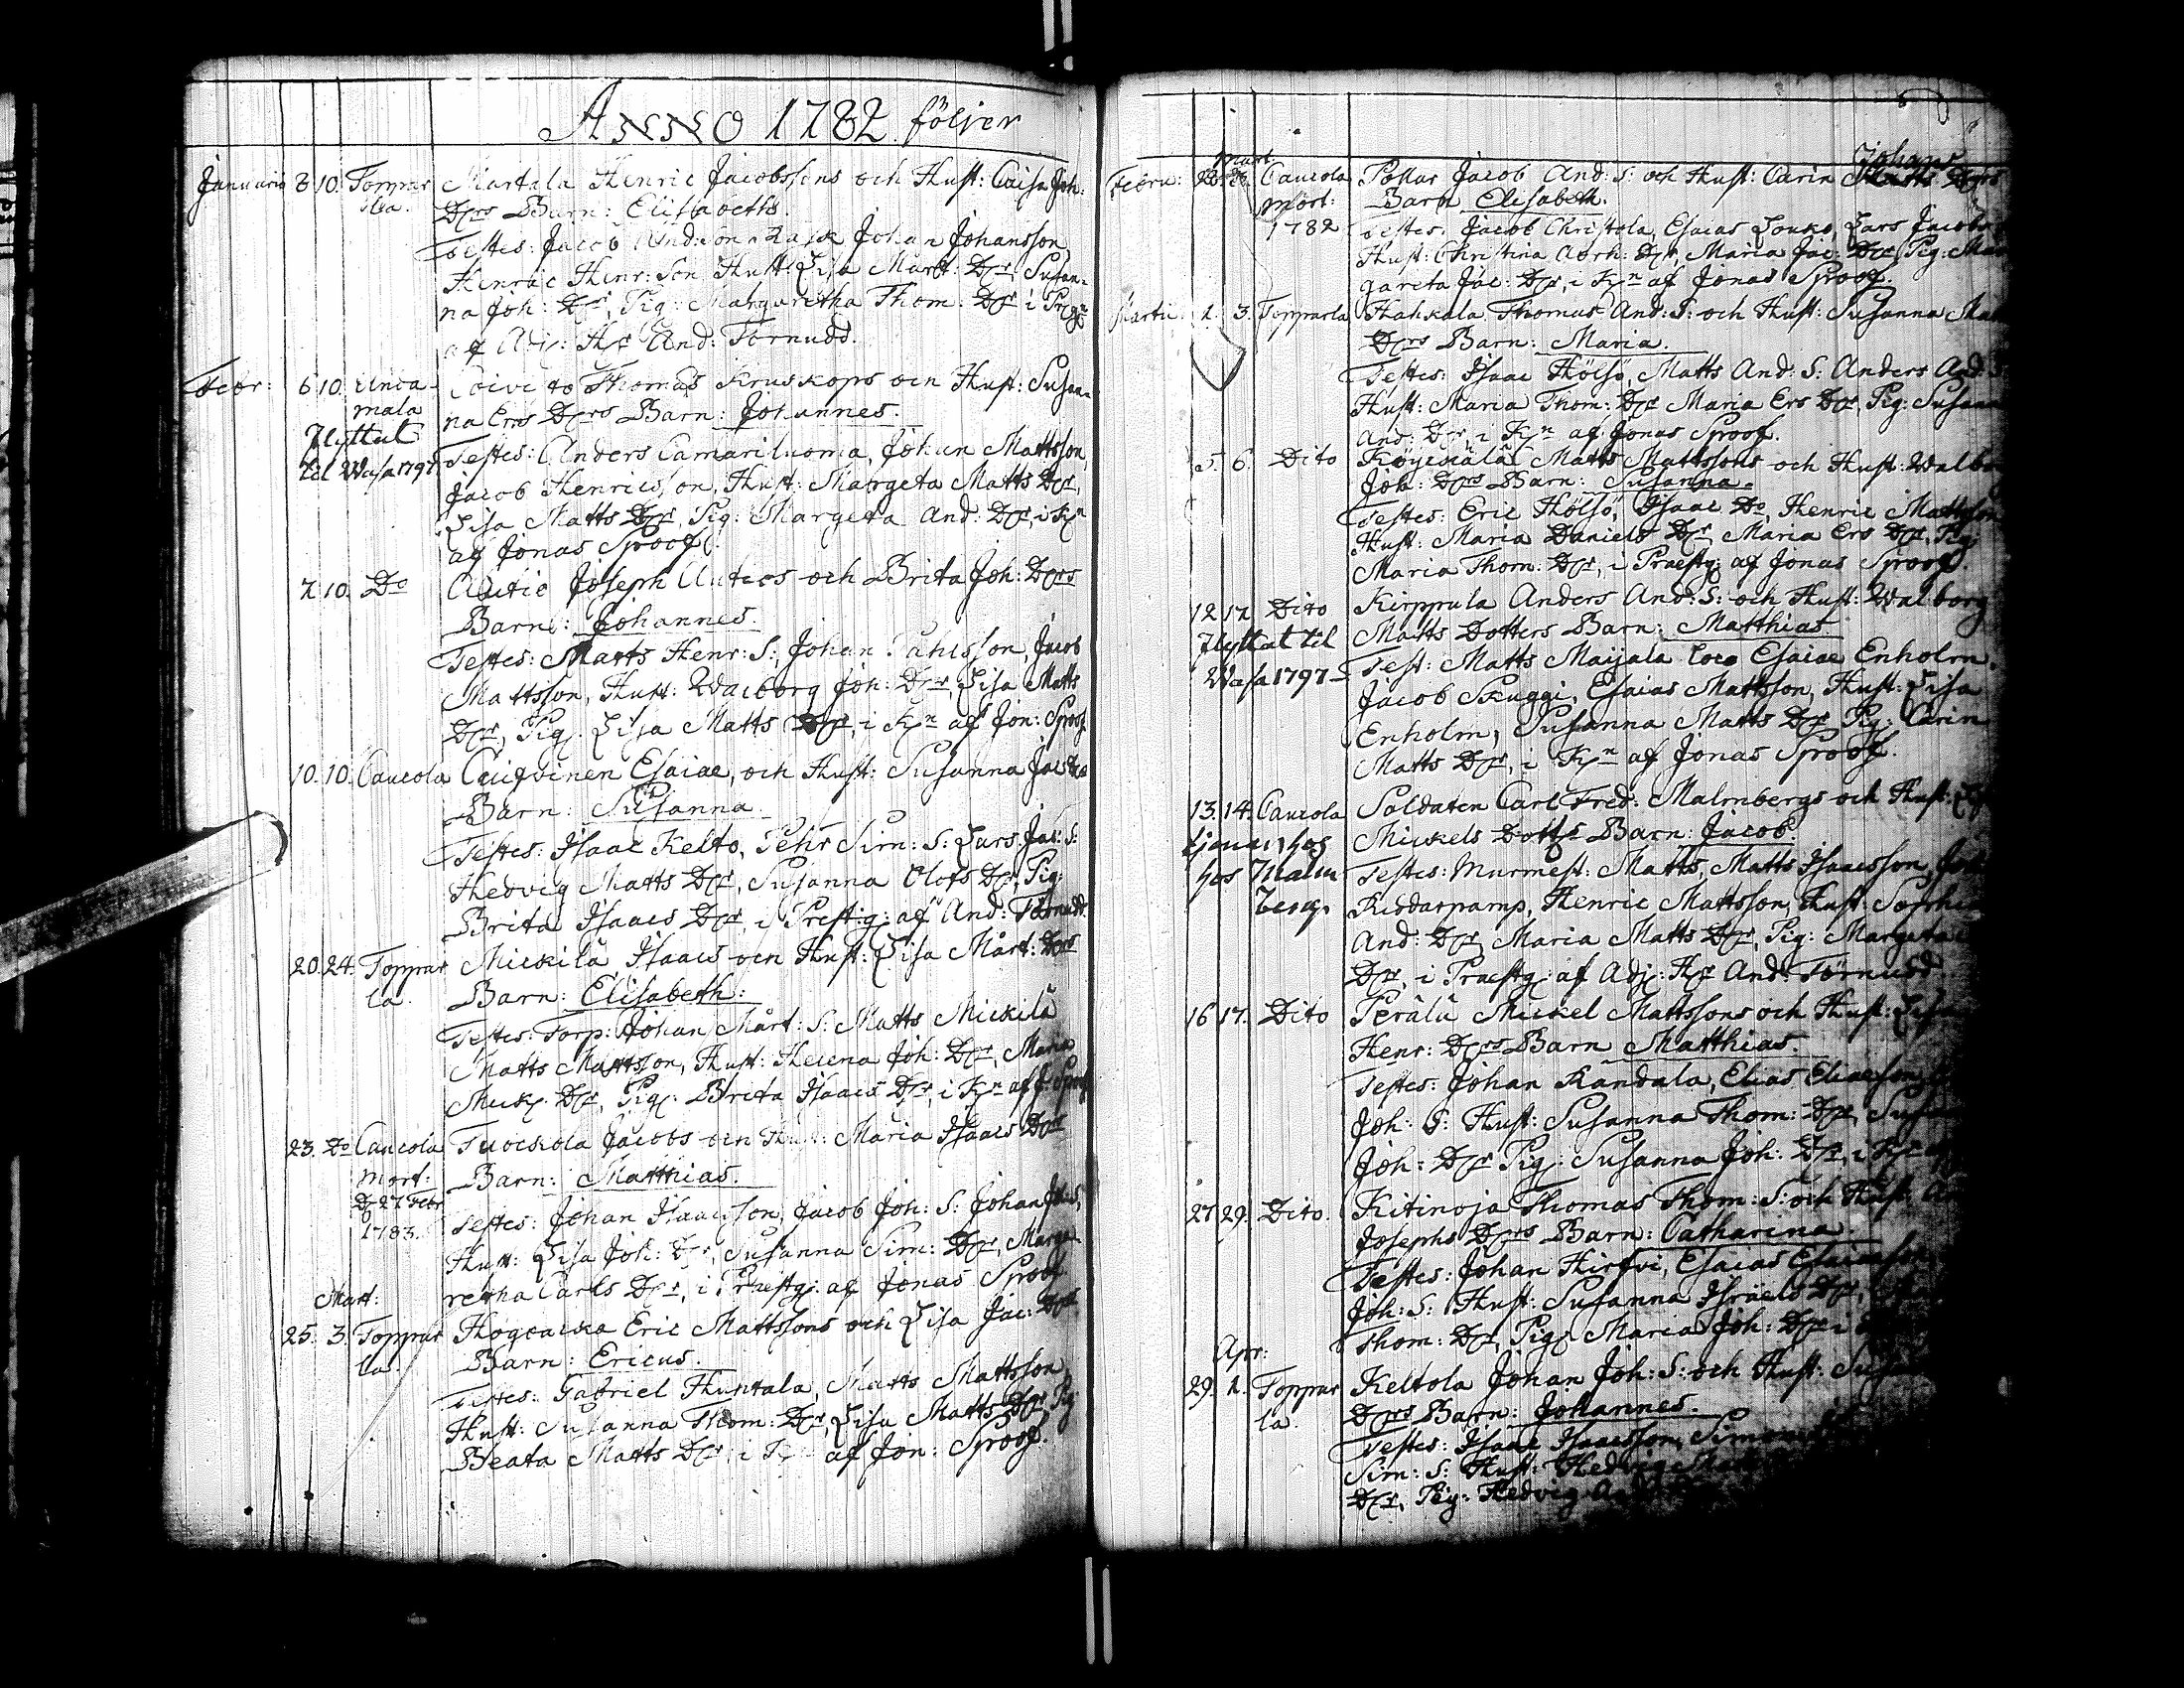 ANNO 1782. följer
Januarii 8 10. Toppar Martala Henric Jacobssons och Hust: Caisa Joh:
la. Dottrs Barn: Elisabeth.
Testes: Jacob And:son Rask Johan Johansson,
Henric Henr: Son, Hust: Lisa Mårt: Dotr, Susan-
na Joh: Dotr, Pig: Margaretha Thom: Dotr i Prg:
af Adj: Hr And: Törnudd.
Febr: 6 10. Unda Thomas Kruskops och Hust: Susan-
mala na Ers Dotrs Barn: Johannes.
Flyttat Testes: Anders Camariluoma, Johan Mattsson,
til Wasa 1797 Jacob Henricsson, Hust: Margeta Matts Dotr,
Lisa Matts Dotr, Pig: Margeta And: Dotr, i Kn
af Jonas Sproof.
7 10. Do Autio Joseph Anders och Brita Joh: Dotrs
Barn: Johannes.
Testes: Matts Henr: S:, Johan Påhlsson, Jacob
Mattsson, Hust: Walborg Joh: Dotr, Lisa Matts
Dotr, Pig. Lisa Matts Dotr, i Kn af Jon: Sproof
10. 10. Caucola Esaiae, och Hust: Susanna Jac
Barn: Susanna.
Testes: Isaac Kelto, Pehr Sim: S: Lars Jac: S:
Hedvig Matts Dotr, Susanna Olofs Dotr, Pig:
Brita Isaacs Dotr, i Prestg: af And: Törnudd
20. 24. Toppar Mickilä Isaacs och Hust: Lisa Mårt: Dotrs
la. Barn: Elisabeth:
Testes: Torp: Johan Mårt: S: Matts Mickilä
Matts Mattsson, Hust: Helena Joh: Dotr, Maria
Mick: Dotr, Pig: Brita Isaacs Dotr, i Kn af J: Sproof
23. Do Caucola Tuockola Jacobs och Hust: Maria Isaacs Dotrs
Mort: Barn: Matthias.
D 27 Febr Testes: Johan Isaacsson, Jacob Joh: S: Johan
1783. Hust: Lisa Joh: Dotr, Susanna Sim: Dotr, Marga-
Mart: retha Carls Dotr, i Præstg: af Jonas Sproof
25. 3. Toppar Eric Mattssons och Lisa Jac: Dotrs
la. Barn: Ericus.
Testes: Gabriel Huntala, Matts Mattsson,
Hust: Susanna Thom: Dotr, Lisa Matts Dotr Pig
Beata Matts Dotr, i Kn af Jon: Sproof.
Mart. Johans
Febru: 28 Caucola Pollar Jacob And: S: och Hust: Carin Matts Dotrs
Mort: Barn Elisabeth.
1782 Testes. Jacob Christola, Esaias Louko, Lars Jacobs
Hust: Christina Abrh: Dotr, Maria Jac: Dotr Pig: Mar
gareta Jac: Dotr, i Kn af Jonas Sproof.
Martii 1. 3. Topparla Hahkala Thomas And: S: och Hust: Susanna
Dotrs Barn: Maria.
Testes: Isaac Hölsö, Matts And: S: Anders And: S
Hust: Maria Thom: Dotr Maria Ers Dotr, Pig: Susann
And: Dotr, i Kn af Jonas Sproof.
5. 6. Dito Matts Mattssons och Hust: Walbo
Joh: Dotrs Barn: Susanna.
Testes: Eric Hölsö, Isaac Do, Henric Mattsson
Hust: Maria Daniels Dotr, Maria Ers Dotr, Pig:
Maria Thom: Dotr, i Præstg: af Jonas Sproof.
12 17 Dito Kirppula Anders And: S: och Hust: Walborg
Flyttat til Matts Dotters Barn: Matthias
Wasa 1797 Test: Matts Maijala loco Esaiae Enholm,
Jacob Skuggi, Esaias Mattsson, Hust: Lisa
Enholm, Susanna Matts Dotr Pig: Carin
Matts Dotr, i Kn af Jonas Sproof.
13. 14. Caucola Soldaten Carl Fred: Malmbergs och Hust:
Mickels Dotts Barn: Jacob.
hos Malm Testes: Murmest: Matts, Matts Isaacsson,
berg. Riddarpamp, Henric Mattsson, Hust: Sophia
And: Dotr, Maria Matts Dotr, Pig: Margeta
Dotr, i Præstg: af Adj: Hr And: Törnudd
16 17. Dito Perälä Mickel Mattssons och Hust: Lisa
Henr: Dotrs Barn Matthias.
Testes: Johan Kandala, Elias Eliaesson,
Joh: S: Hust: Susanna Thom: Dotr,
Joh: Dotr Pig: Susanna Joh: Dotr, i Kn
27 29. Dito. Kitinoja Thomas Thom: S: och Hust:
Josephs Dotrs Barn: Catharina
Testes: Johan Hirfvi, Esaias Esaiaesson
Joh: S: Hust: Susanna Israels Dotr,
Apr: Thom: Dotr, Pig: Maria Joh: Dotr i
29. 1. Toppar Keltola Johan Joh: S: och Hust:
la. Dotrs Barn: Johannes.
Testes: Isaac Isaacsson, Simon
Sim: S: Hust: Hedvig
Dotr, Pig: Hedvig